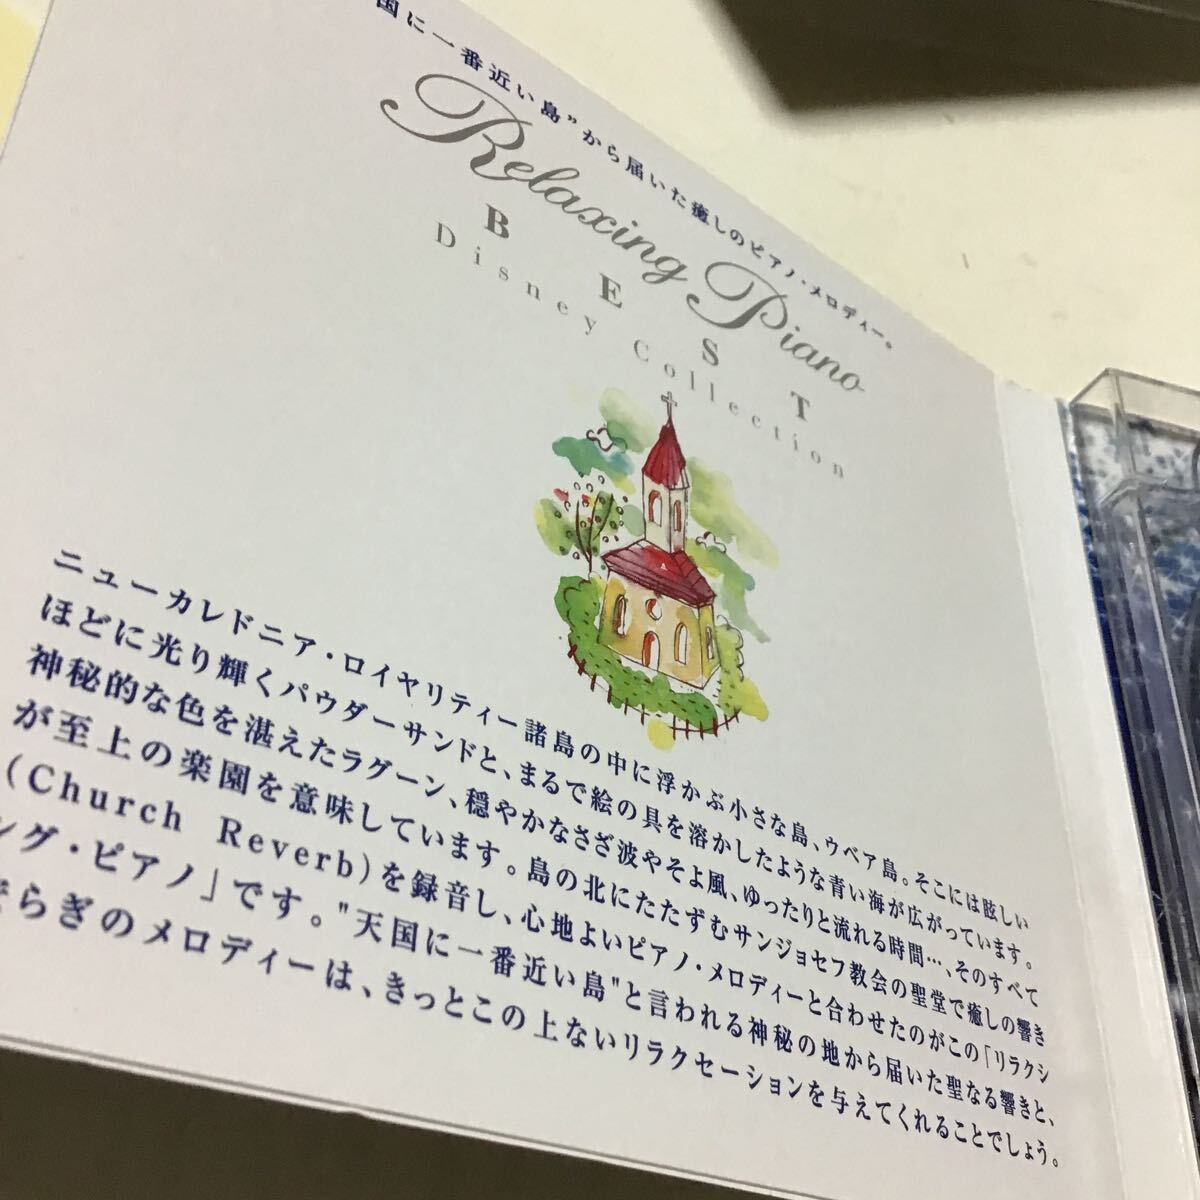 国に一番近い島”から届いた癒しのピアノ・メロディー。
Relaxing Piano
BEST
Disney Collection
ニューカレドニア・ロイヤリティー諸島の中に浮かぶ小さな島、ウベア島。そこには眩しい
ほどに光り輝くパウダーサンドと、まるで絵の具を溶かしたような青い海が広がっています。
神秘的な色を湛えたラグーン、穏やかなさざ波やそよ風、ゆったりと流れる時間…、そのすべて
が至上の楽園を意味しています。島の北にたたずむサンジョセフ教会の聖堂で癒しの響き
(Church Reverb)を録音し、心地よいピアノ・メロディーと合わせたのがこの「リラクシ
ング・ピアノ」です。"天国に一番近い島"と言われる神秘の地から届いた聖なる響きと、
らぎのメロディーは、きっとこの上ないリラクセーションを与えてくれることでしょう。